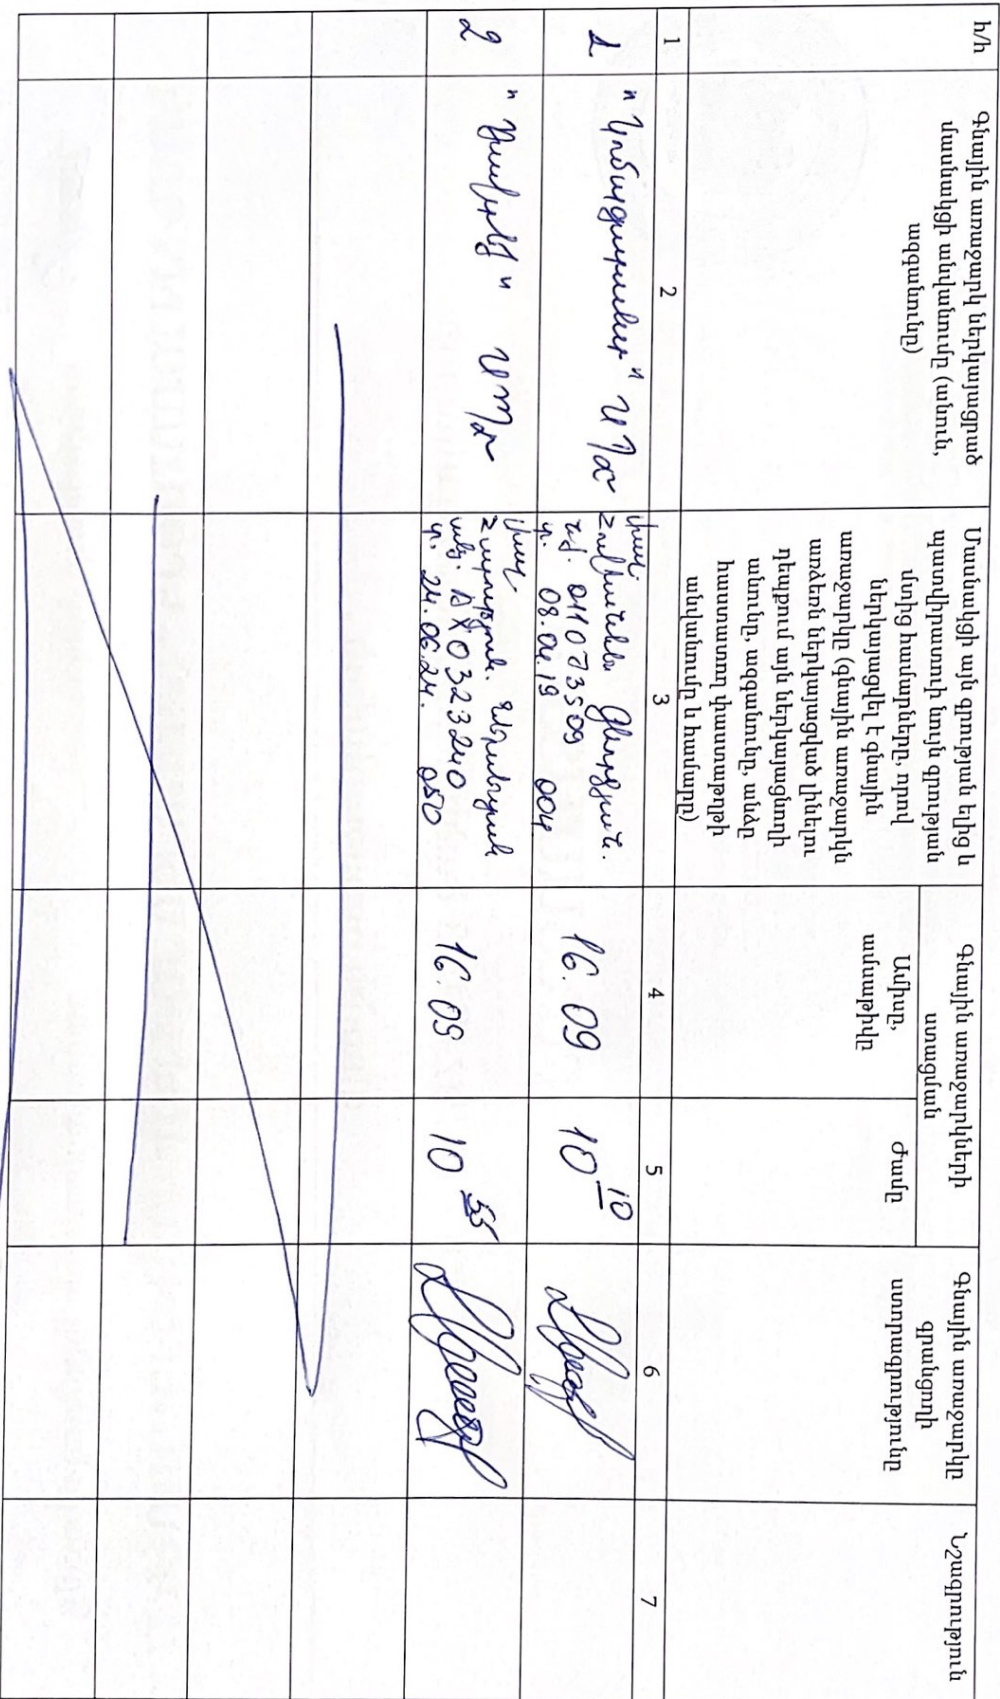 հ/հ
Գնային առաջարկ ներկայացրած
մասնակցի անվանումը (անուն,
ազգանունը)
Մասնակցի այն գրության ելից և
պատվիրատուի նույն գրության
մտից համարները, որով
ներկայացրել է գնային
առաջարկը (գնային առաջարկն
առձեռն ներկայացված լինելու
դեպքում այն ներկայացնողի
անունը, ազգանունը, անձը
հաստատող փաստաթղթի
անվանումը և համարը)
Գնային առաջարկների
ստացման
Ամիսը,
ամսաթիվը
Ժամը
Գնային առաջարկը
գրանցողի
ստորագրությունը
Նշագրություն
1 2 3 4 5 6 7
1
ՍՊԸ
Գևորգյան.
011073509
տ. 08.04.19 004
16.09
10 10
2
ՍՊԸ
Հարություն.
անձ. AX0323240
տ. 24.06.24. 050
16.09
10 55